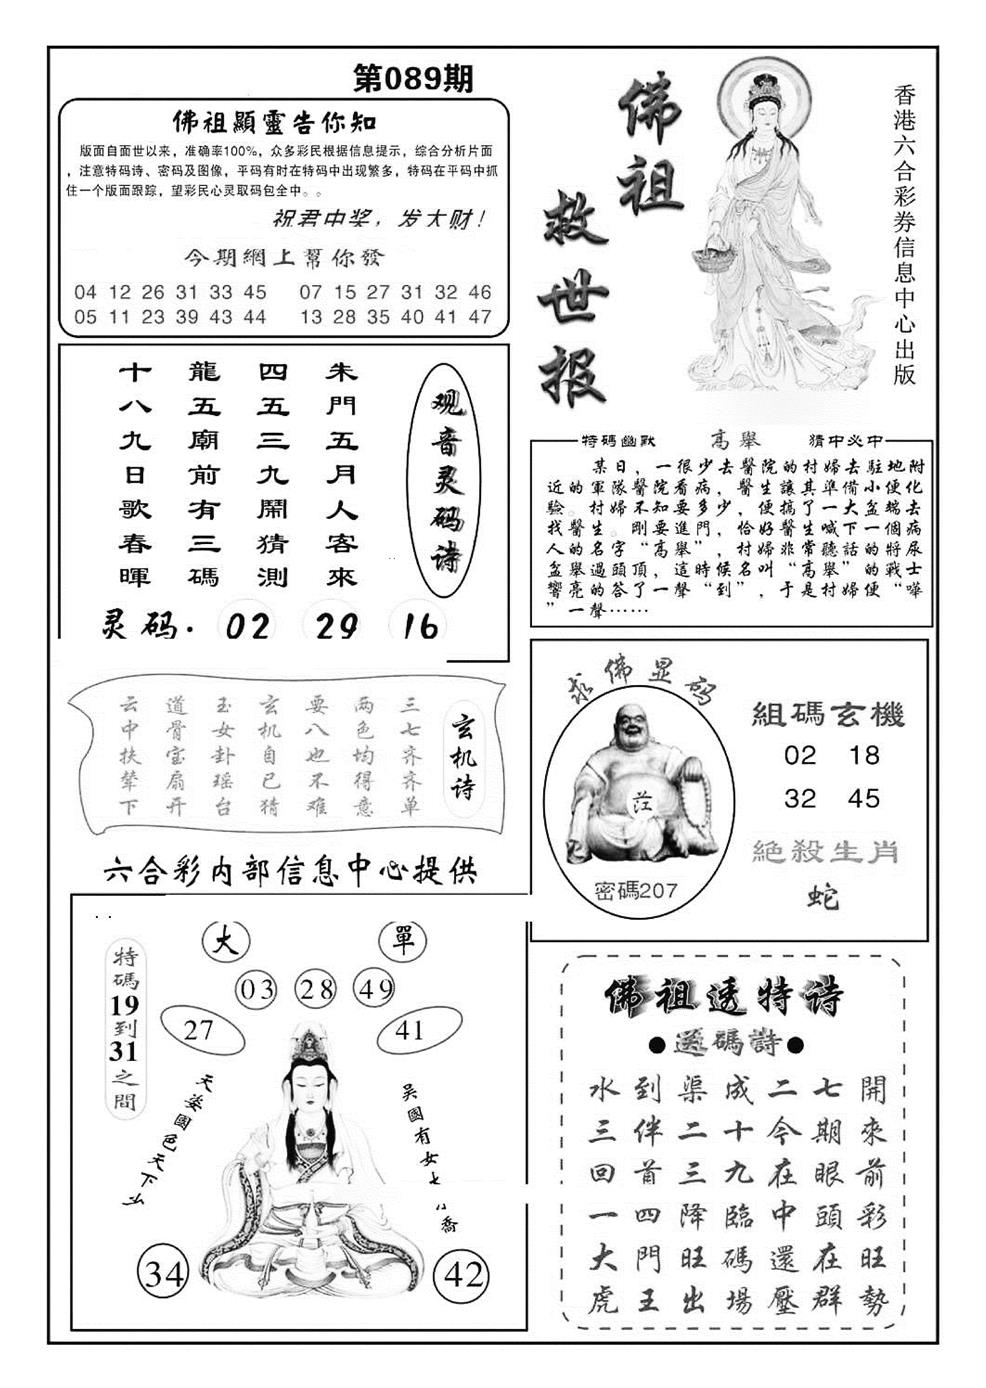 第089期
佛祖顯靈告你知
版面自面世以来，准确率100%，众多彩民根据信息提示，综合分析片面
，注意特码诗、密码及图像，平码有时在特码中出现繁多，特码在平码中抓
住一个版面跟踪，望彩民心灵取码包全中。。
祝君中奖，发大财！
今期網上幫你發
04 12 26 31 33 45 07 15 27 31 32 46
05 11 23 39 43 44 13 28 35 40 41 47
佛祖
救世报
香港六合彩券信息中心出版
观音灵码诗
朱門五月人客來
四五三九鬧猜測
龍五廟前有三碼
十八九日歌春暉
灵码. 02 29 16
特碼幽默 高舉 猜中必中
某日，一很少去醫院的村婦去駐地附
近的軍隊醫院看病，醫生讓其準備小便化
驗。村婦不知要多少，便搞了一大盆端去
找醫生。剛要進門，恰好醫生喊下一個病
人的名字“高舉”，村婦非常聽話的將尿
盆舉過頭頂，這時候名叫“高舉”的戰士
響亮的答了一聲“到”，于是村婦便“嘩
”一聲……
玄机诗
三七齐齐单
两色均得意
要八也不难
玄机自已猜
玉女卦瑶台
道骨宝扇开
云中扶辇下
六合彩内部信息中心提供
求佛显码
密碼207
組碼玄機
02 18
32 45
絕殺生肖
蛇
特碼19到31之間
大 單
03 28 49
27 41
天姿國色天下少
吴國有女
喬
34 42
佛祖透特诗
●透碼詩●
水到渠成二七開
三伴二十今期來
回首三九在眼前
一四降臨中頭彩
大門旺碼還在旺
虎王出場壓群勢